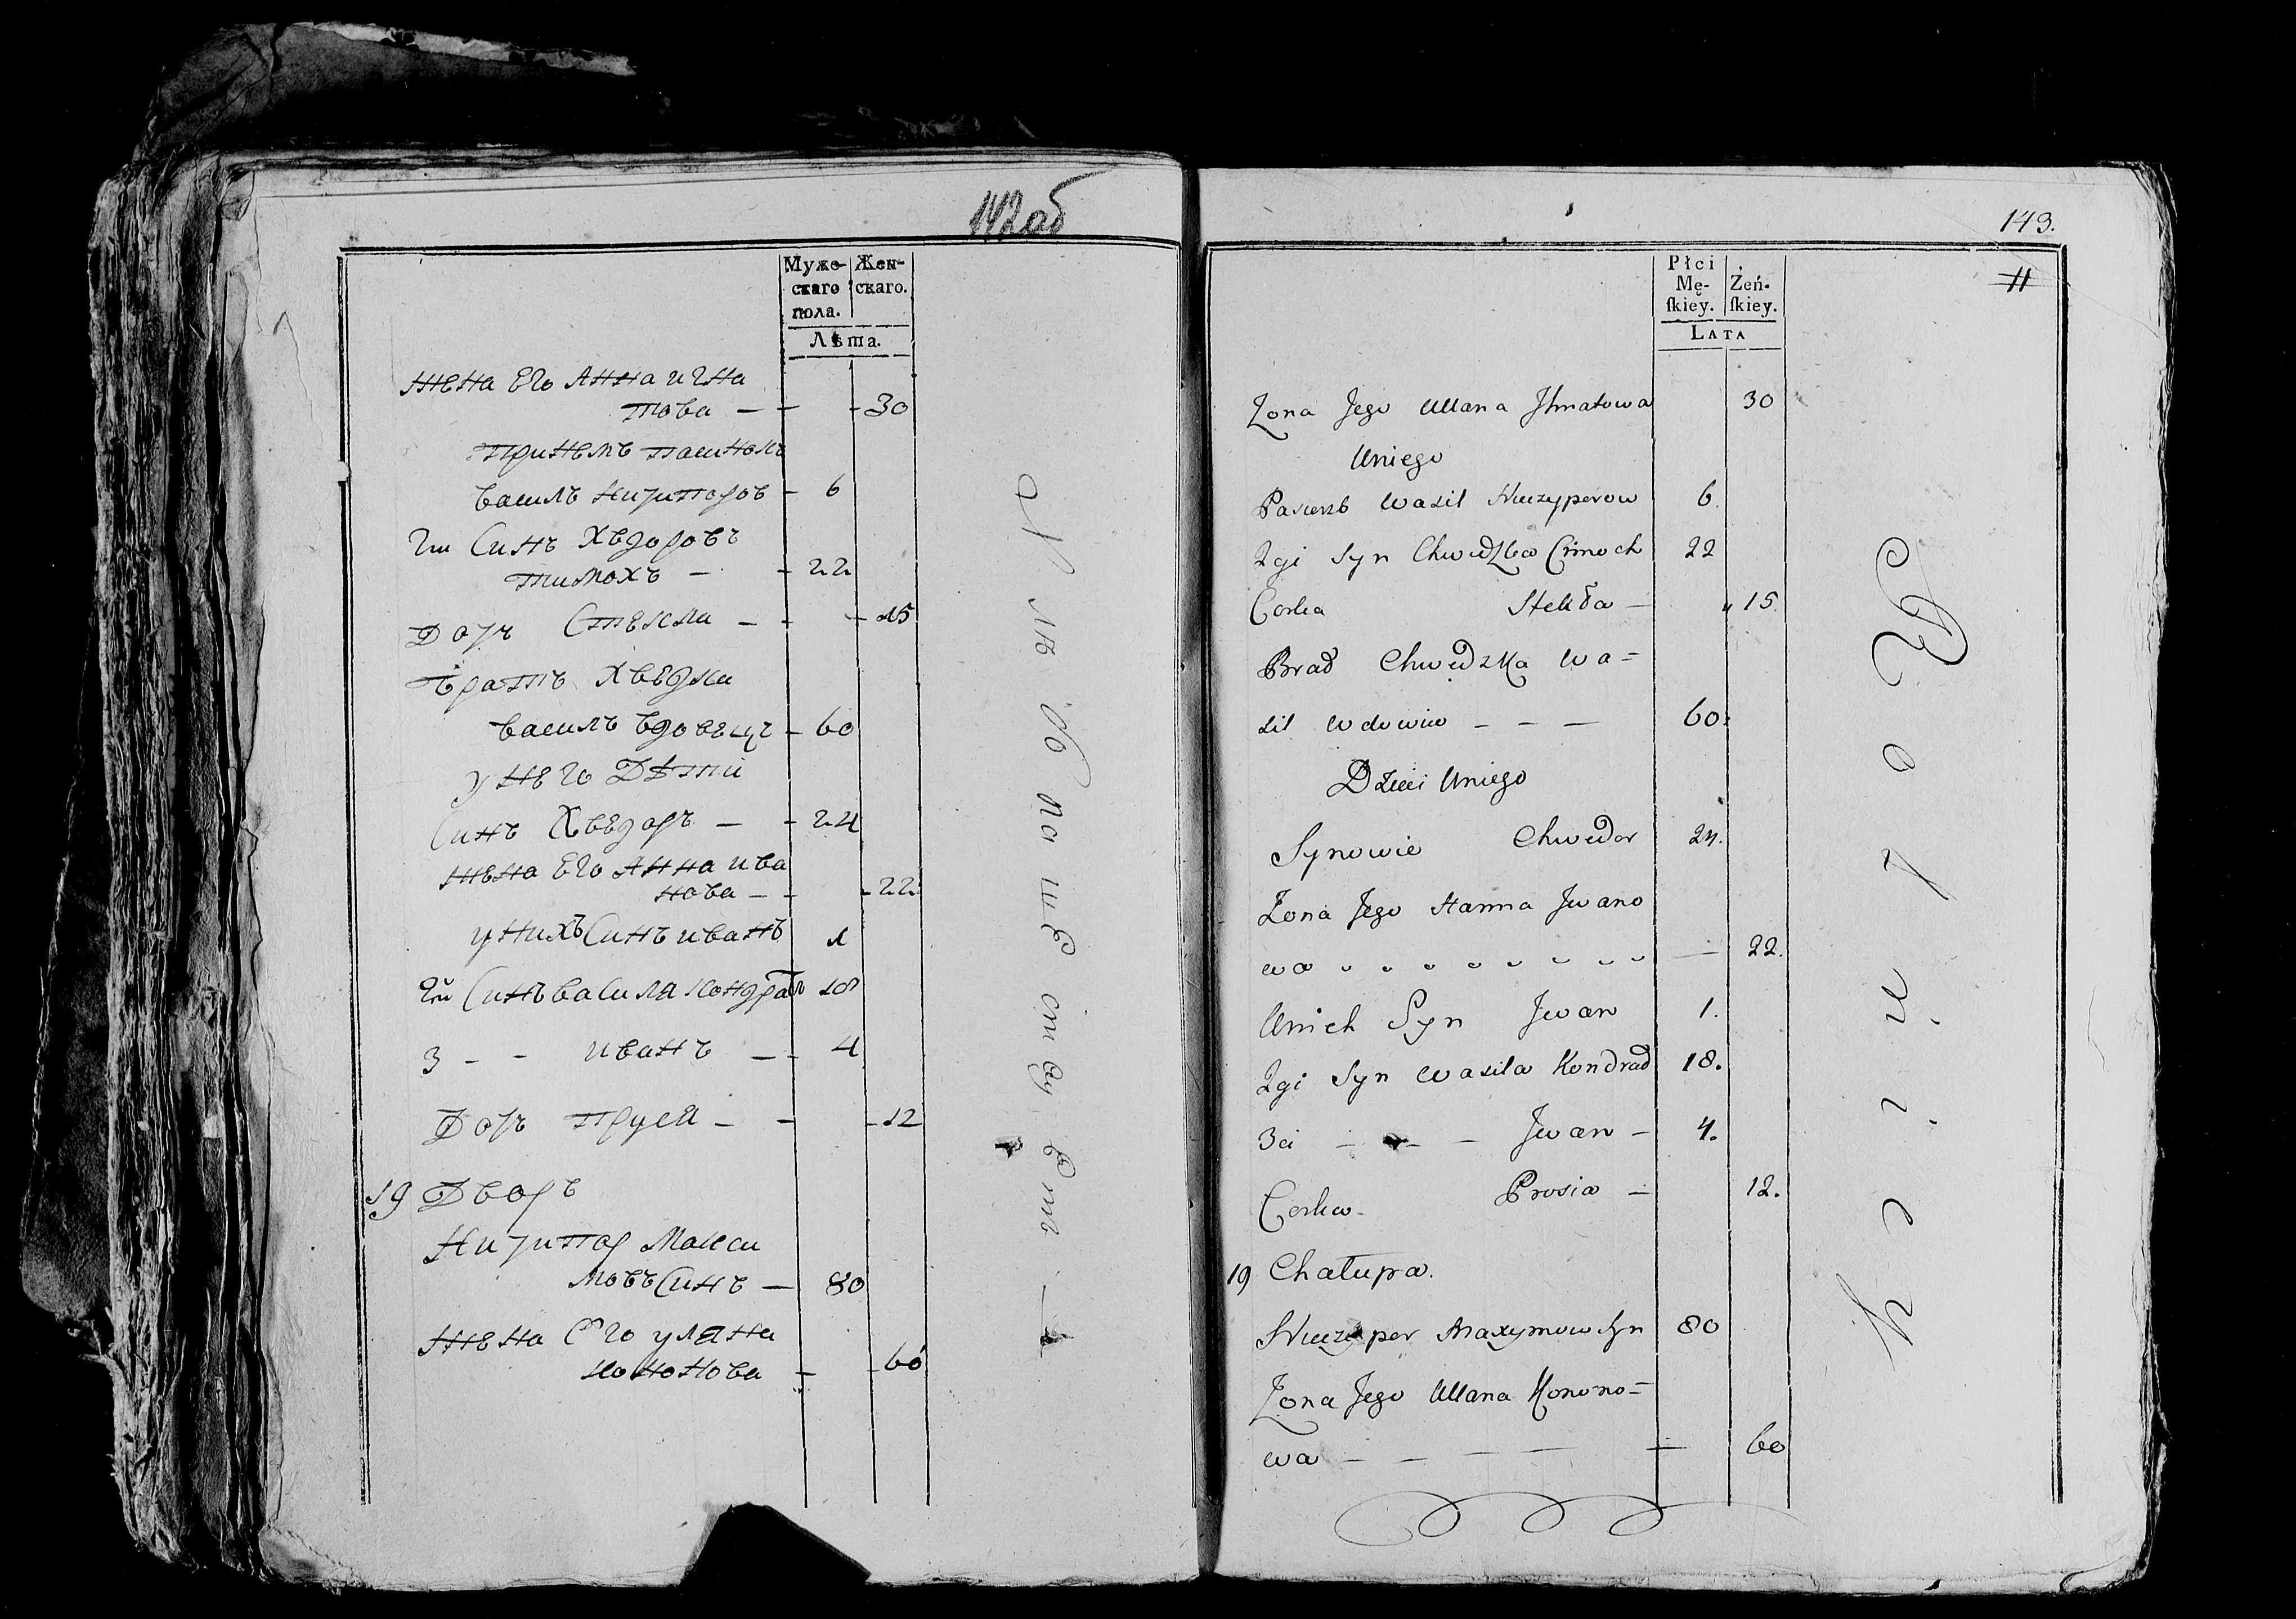 142об
Муже-
скаго
пола.
Жен-
скаго.
Лѣта.
жена Его Анна игна
това — 30
принемъ пасинокъ
василь ничипоровъ - 6
2й Синъ Хведоровъ
тимохъ - 22
Дочь Стекла — 15
братъ Хведка
василь вдовецъ - 60
у него Дѣти
Синъ Хведоръ — 24
жена Его Анна ива
нова — 22
у нихъ Синъ иванъ 1
2й Синъ василя кондратъ 18
3 - - иванъ — 4
Дочь прися — 12
19 Дворъ
Ничипор Макси
мовъ Синъ — 80
жена Его уляна
кононова — 60
143.
11
Płci
Mę-
ſkiey.
Żeń-
ſkiey.
LATA
Zona Jego Ullana Jhnatowa 30
Uniego
Pasierzb Wasil Niczyperow 6.
2gi Syn Chwedka Cimoch 22
Corka Stekła — 15.
Brad Chwedzka Wa=
sil Wdowiec — — — 60.
Dzieci Uniego
Synowie Chwedor 24.
Zona Jego Hanna Jwano
wa — 22.
Unich Syn Jwan 1.
2gi Syn Wasila Kondrad 18.
3ci — — — Jwan — 4.
Corka Prosia — 12.
19 Chałupa.
Niczyper Maxymow Syn 80
Zona Jego Ullana Konono=
wa — — — — 60